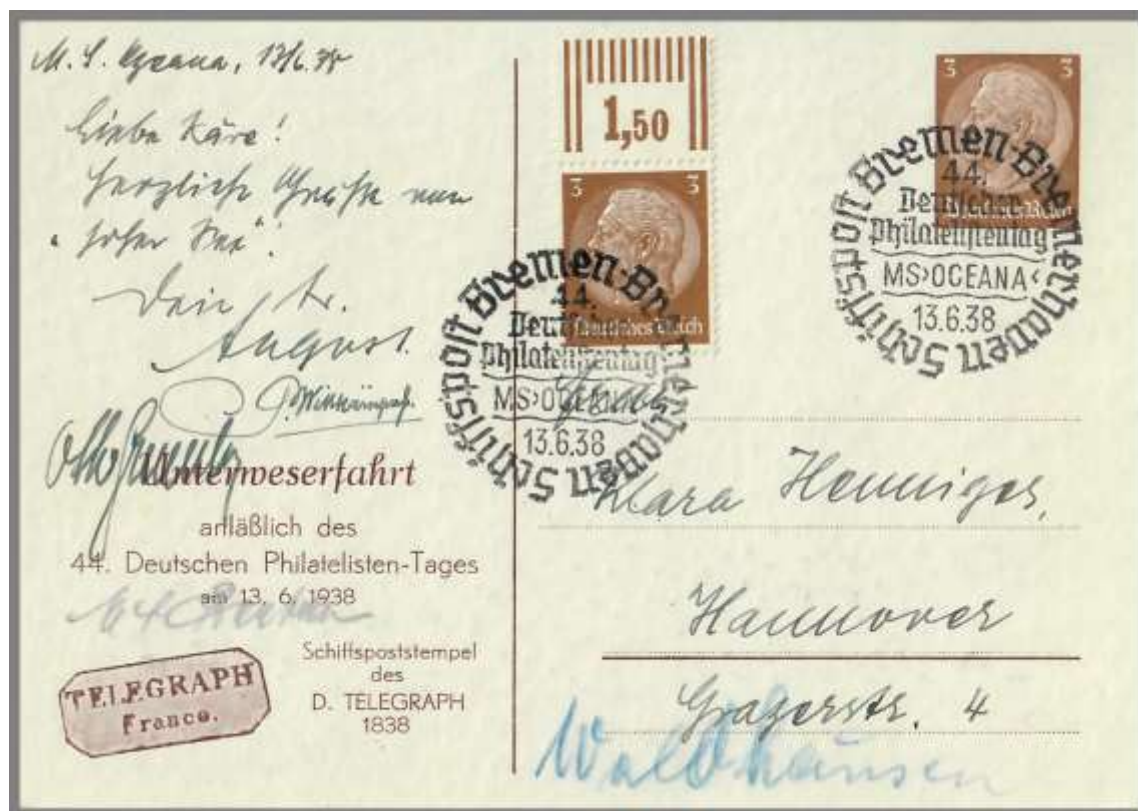 M. S. Oceana, 13/6.38
Liebe Käre!
Herzliche Grüße von
"hoher See".
Dein tr.
August.
Unterweserfahrt
anläßlich des
44. Deutschen Philatelisten-Tages
am 13. 6. 1938
Schiffspoststempel
des
D. TELEGRAPH
1838
TELEGRAPH
Franco.
1,50
3 3
Deutsches Reich
Schiffspost Bremen-Bremerhaven
44.
Deutscher
Philatelistentag
MS›OCEANA‹
13.6.38
3 3
Deutsches Reich
Schiffspost Bremen-Bremerhaven
44.
Deutscher
Philatelistentag
MS›OCEANA‹
13.6.38
Klara Henniges,
Hannover
Grazerstr. 4
Waldhausen